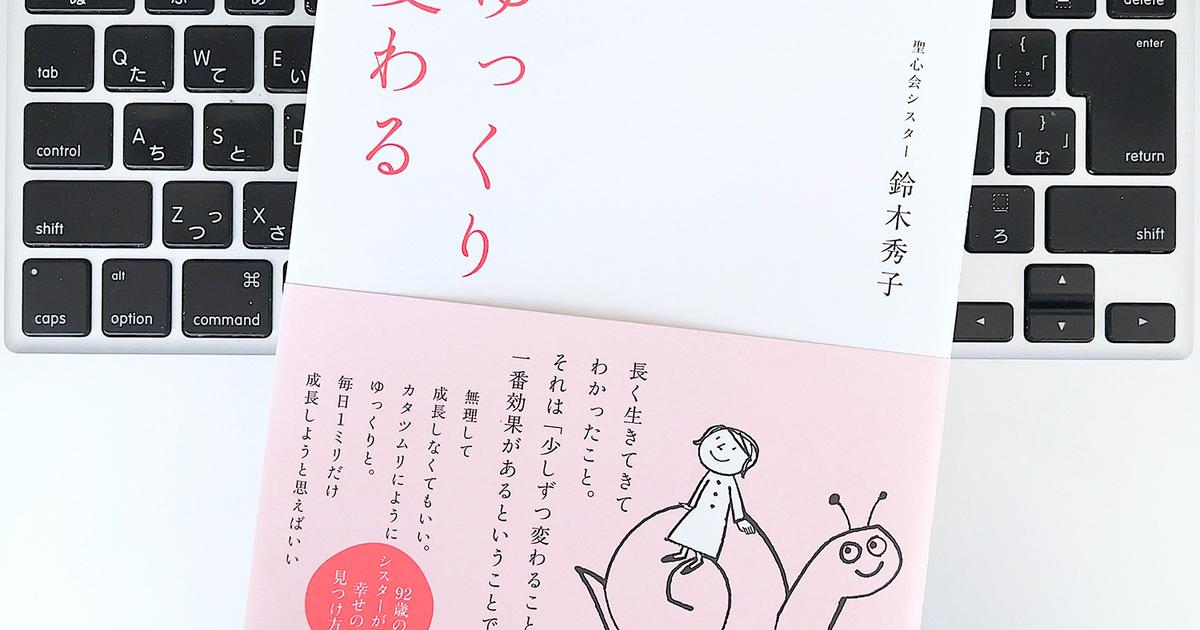 ゆっくり
変わる
聖心会シスター 鈴木秀子
長く生きてきて
わかったこと。
それは「少しずつ変わること
一番効果があるということで
無理して
成長しなくてもいい。
カタツムリにように
ゆっくりと。
毎日1ミリだけ
成長しようと思えばいい
92歳の
シスターが
幸せの
見つけ方
delete
tab
Q
た
W
て
E
い
{
「
enter
return
control
A
ち
S
と
D
}
]
」
む
shift
Z
っ
つ
X
さ
ろ
shift
caps
alt
option
⌘
command